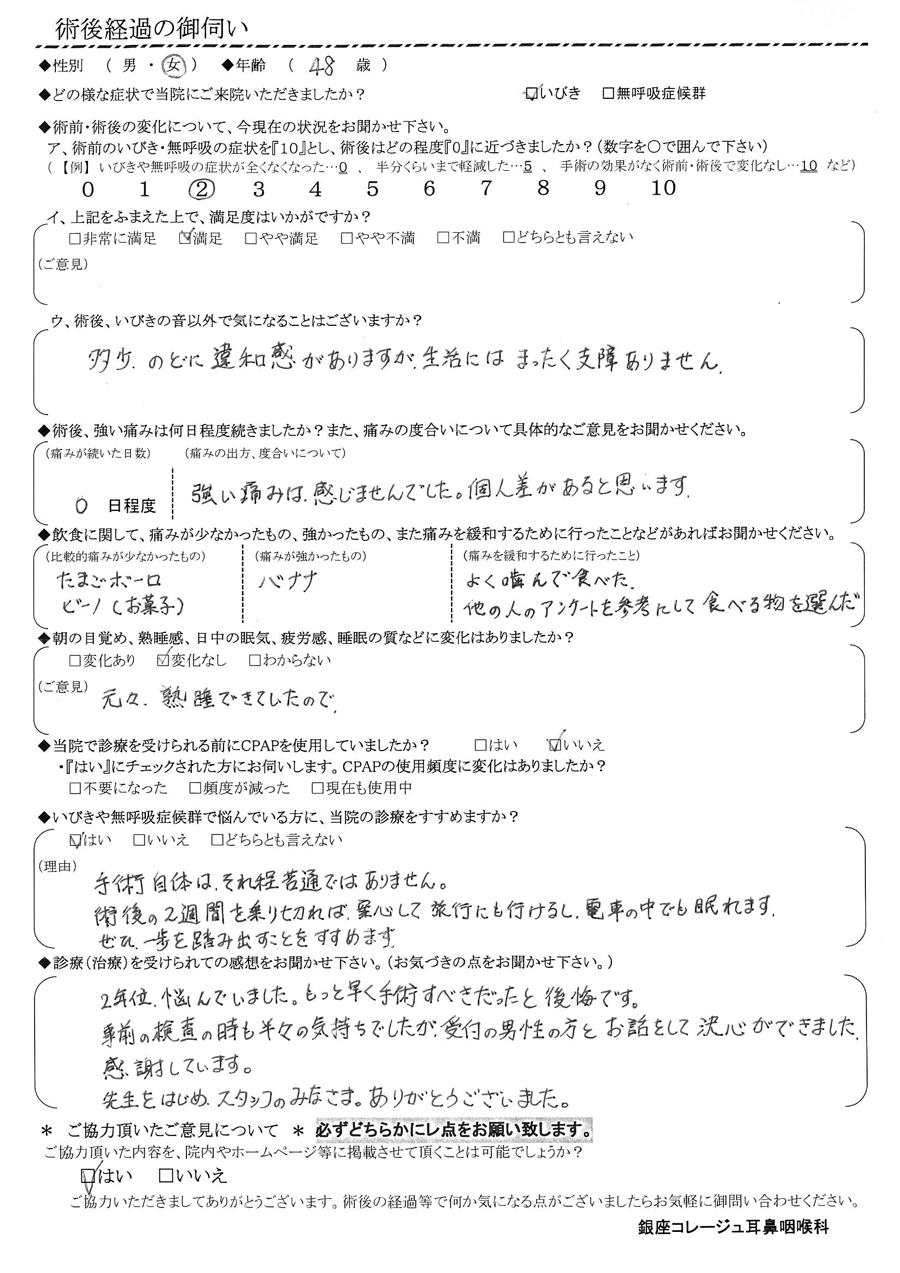 術後経過の御伺い
◆性別 ( 男 ・ 女 ) ◆年齢 ( 48 歳 )
◆どの様な症状で当院にご来院いただきましたか? ☑いびき □無呼吸症候群
◆術前・術後の変化について、今現在の状況をお聞かせ下さい。
ア、術前のいびき・無呼吸の症状を『10』とし、術後はどの程度『0』に近づきましたか?(数字を○で囲んで下さい)
(【例】いびきや無呼吸の症状が全くなくなった…0 、 半分くらいまで軽減した…5 、 手術の効果がなく術前・術後で変化なし…10 など)
0 1 ② 3 4 5 6 7 8 9 10
イ、上記をふまえた上で、満足度はいかがですか?
□非常に満足 ☑満足 □やや満足 □やや不満 □不満 □どちらとも言えない
(ご意見)
ウ、術後、いびきの音以外で気になることはございますか?
多少、のどに違和感がありますが、生活にはまったく支障ありません。
◆術後、強い痛みは何日程度続きましたか?また、痛みの度合いについて具体的なご意見をお聞かせください。
(痛みが続いた日数) (痛みの出方、度合いについて)
0 日程度 強い痛みは、感じませんでした。個人差があると思います。
◆飲食に関して、痛みが少なかったもの、強かったもの、また痛みを緩和するために行ったことなどがあればお聞かせください。
(比較的痛みが少なかったもの) (痛みが強かったもの) (痛みを緩和するために行ったこと)
たまごボーロ バナナ よく噛んで食べた。
ビーノ(お菓子) 他の人のアンケートを参考にして食べる物を選んだ
◆朝の目覚め、熟睡感、日中の眠気、疲労感、睡眠の質などに変化はありましたか?
□変化あり ☑変化なし □わからない
(ご意見) 元々、熟睡できてしたので。
◆当院で診療を受けられる前にCPAPを使用していましたか? □はい ☑いいえ
・『はい』にチェックされた方にお伺いします。CPAPの使用頻度に変化はありましたか?
□不要になった □頻度が減った □現在も使用中
◆いびきや無呼吸症候群で悩んでいる方に、当院の診療をすすめますか?
☑はい □いいえ □どちらとも言えない
(理由)
手術自体は、それ程苦通ではありません。
術後の2週間を乗り切れば、安心して旅行にも行けるし、電車の中でも眠れます。
ぜひ、一歩を踏み出すことをすすめます。
◆診療(治療)を受けられての感想をお聞かせ下さい。(お気づきの点をお聞かせ下さい。)
2年位、悩んでいました。もっと早く手術すべきだったと後悔です。
事前の検査の時も半々の気持ちでしたが、受付の男性の方とお話をして決心ができました。
感謝しています。
先生をはじめ、スタッフのみなさま。ありがとうございました。
＊ ご協力頂いたご意見について ＊ 必ずどちらかにレ点をお願い致します。
ご協力頂いた内容を、院内やホームページ等に掲載させて頂くことは可能でしょうか?
☑はい □いいえ
ご協力いただきましてありがとうございます。術後の経過等で何か気になる点がございましたらお気軽に御問い合わせください。
銀座コレージュ耳鼻咽喉科